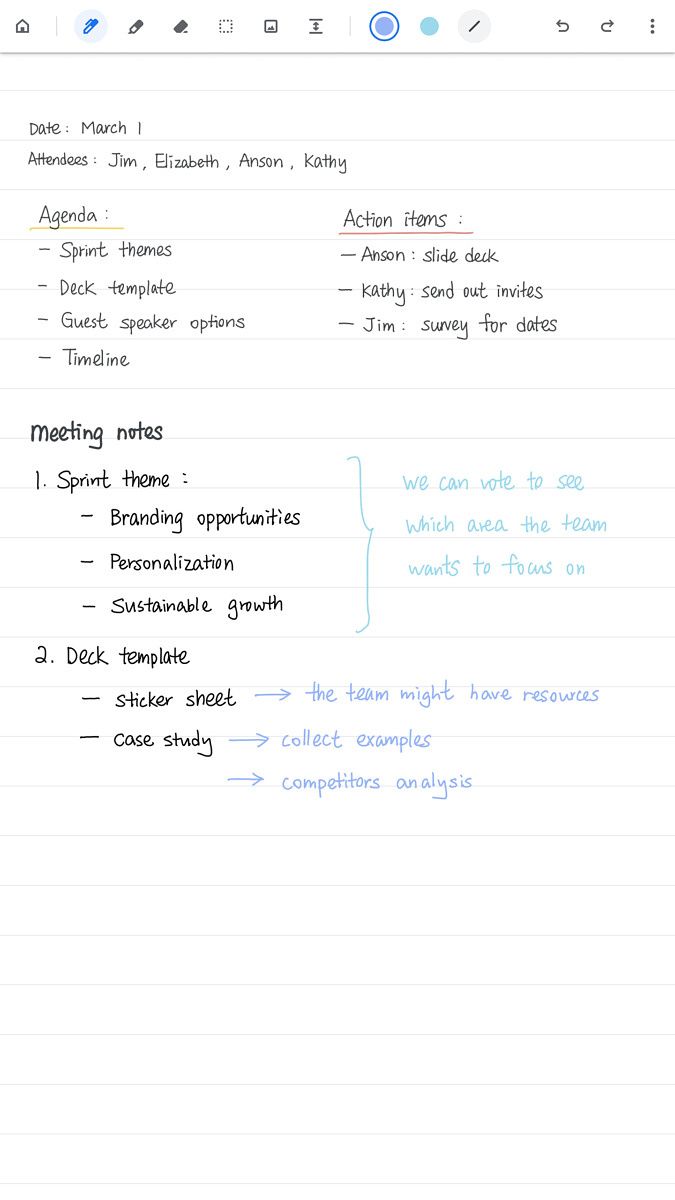 Date: March 1
Attendees: Jim, Elizabeth, Anson, Kathy
Agenda:
- Sprint themes
- Deck template
- Guest speaker options
- Timeline
Action items:
- Anson: slide deck
- Kathy: send out invites
- Jim: survey for dates
Meeting notes
1. Sprint theme:
- Branding opportunities
- Personalization
- Sustainable growth
we can vote to see
which area the team
wants to focus on
2. Deck template
- Sticker sheet → the team might have resources
- Case study → collect examples
→ competitors analysis